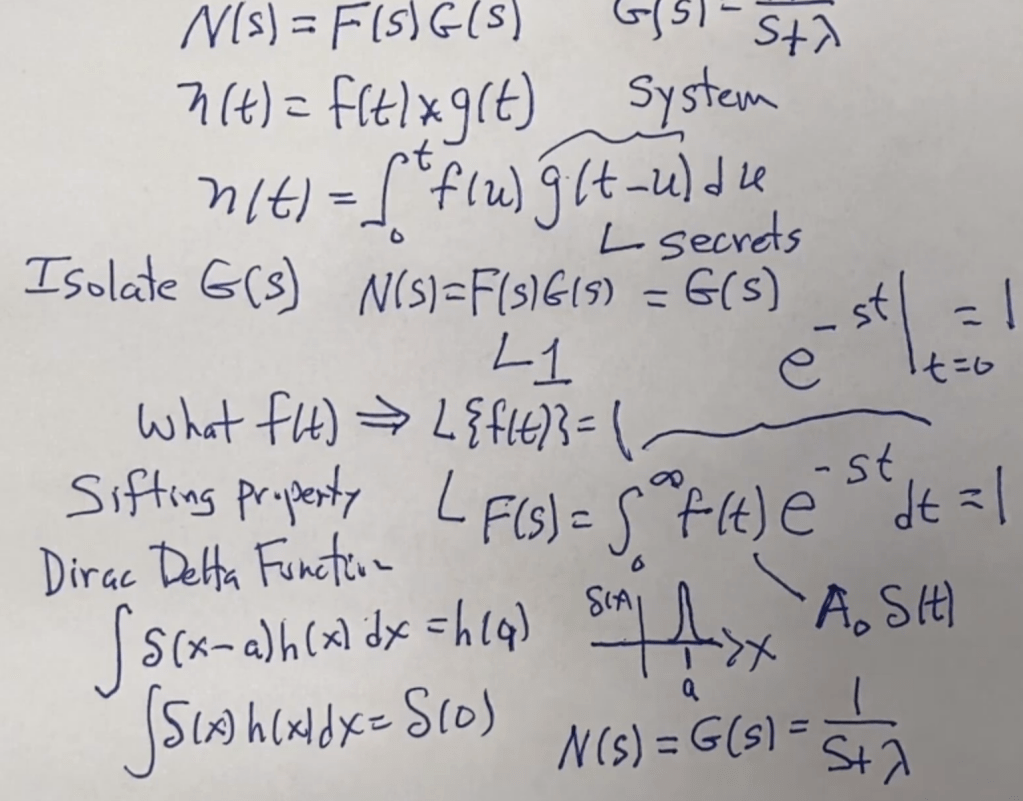 N(s) = F(s) G(s)   G(s) = 1/(s+λ)
n(t) = f(t) * g(t)   System
n(t) = ∫₀ᵗ f(u) g(t-u) du
L secrets
Isolate G(s)   N(s) = F(s)G(s) = G(s)
L 1   e^{-st}|_{t=0} = 1
What f(t) ⇒ L{f(t)} = 1
Sifting property   L F(s) = ∫₀^∞ f(t) e^{-st} dt = 1
Dirac Delta Function
∫ δ(x-a) h(x) dx = h(a)   δ(x)   x   a   A₀ δ(t)
∫ δ(x) h(x) dx = δ(0)   N(s) = G(s) = 1/(s+λ)